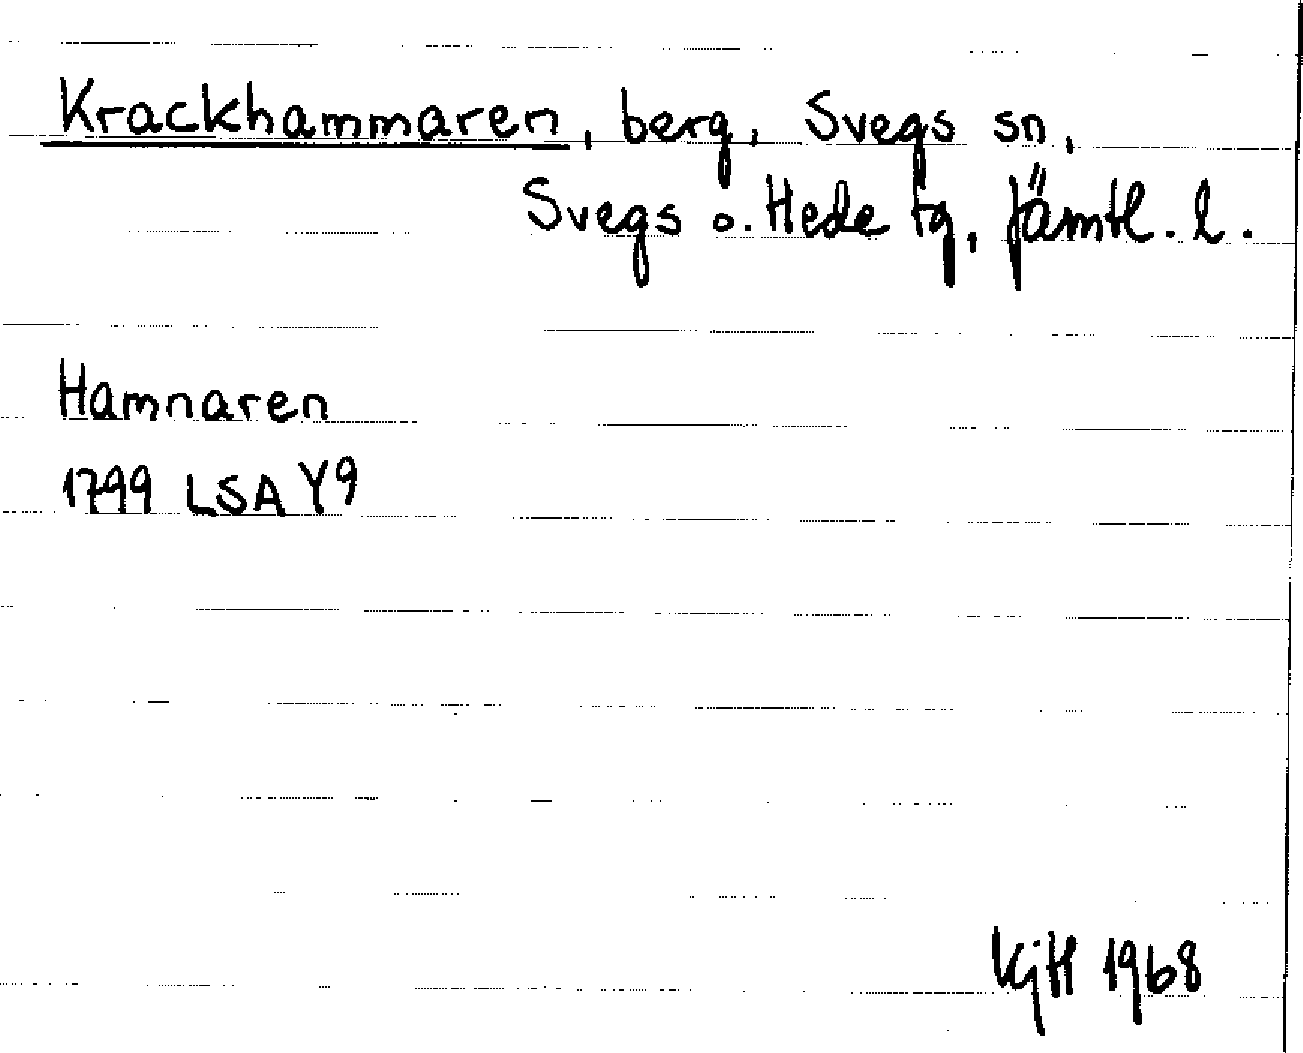 Krackhammaren, berg, Svegs sn,
Svegs o. Hede tg, Jämtl. l.
Hamnaren
1799 LSA Y9
KjH 1968